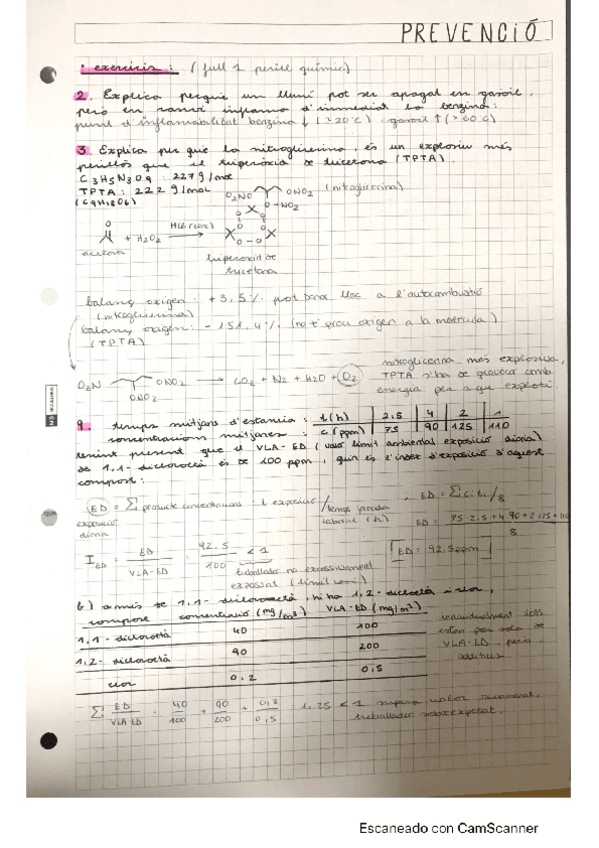 PREVENCIÓ
· exercicis : ( full 1 perill químic)
2. Explica perquè un llumí pot ser apagat en gasoil,
però en canvi inflama d'immediat la benzina:
punt d'inflamabilitat benzina ↓ (>20°C) . gasoil ↑ (>60°C)
3. Explica per què la nitroglicerina, és un explosiu més
perillós que el triperòxid de tricetona (TPTA).
C3H5N3O9 : 227 g/mol
TPTA : 222 g/mol
(C9H18O6)
O2NO ONO2 (nitroglicerina)
O-NO2
O
+ H2O2 HCl (cat)
acetona
O O
O O
O - O
triperòxid de
tricetona
balanç oxigen : + 3,5% pot donar lloc a l'autocombustió
(nitroglicerina)
balanç oxigen : - 151,4% (no té prou oxigen a la molècula)
(TPTA)
O2N ONO2 → CO2 + N2 + H2O + O2
ONO2
nitroglicerina més explosiva,
TPTA s'ha de provocar amb
energia per a que exploti
9. temps mitjans d'estància : t(h) 2,5 4 2 1
concentracions mitjanes : c (ppm) 75 90 125 110
tenint present que el VLA-ED (valor límit ambiental exposició diària)
de 1,1-dicloroetà és de 100 ppm, quin és l'índex d'exposició d'aquest
compost :
ED = Σ producte concentracions · t exposició / temps jornada laboral (8h)
exposició
diària
; ED = Σ ci ti / 8
ED = 75·2,5 + 4·90 + 2·125 + 110 / 8
IED = ED / VLA-ED = 92,5 / 100 < 1
ED = 92,5 ppm
treballador no excessivament
exposat (límit
b) a més de 1,1-dicloroetà, hi ha 1,2-dicloroetà i clor,
compost concentració (mg/m³) VLA-ED (mg/m³)
1,1-dicloroetà 40 100
1,2-dicloroetà 90 200
clor 0,2 0,5
individualment tots
estan per sota de
VLA-ED però
additius
Σ ED / VLA-ED = 40/100 + 90/200 + 0,2/0,5 = 1,25 < 1 supera valor
treballador sobreexposat.
Escaneado con CamScanner